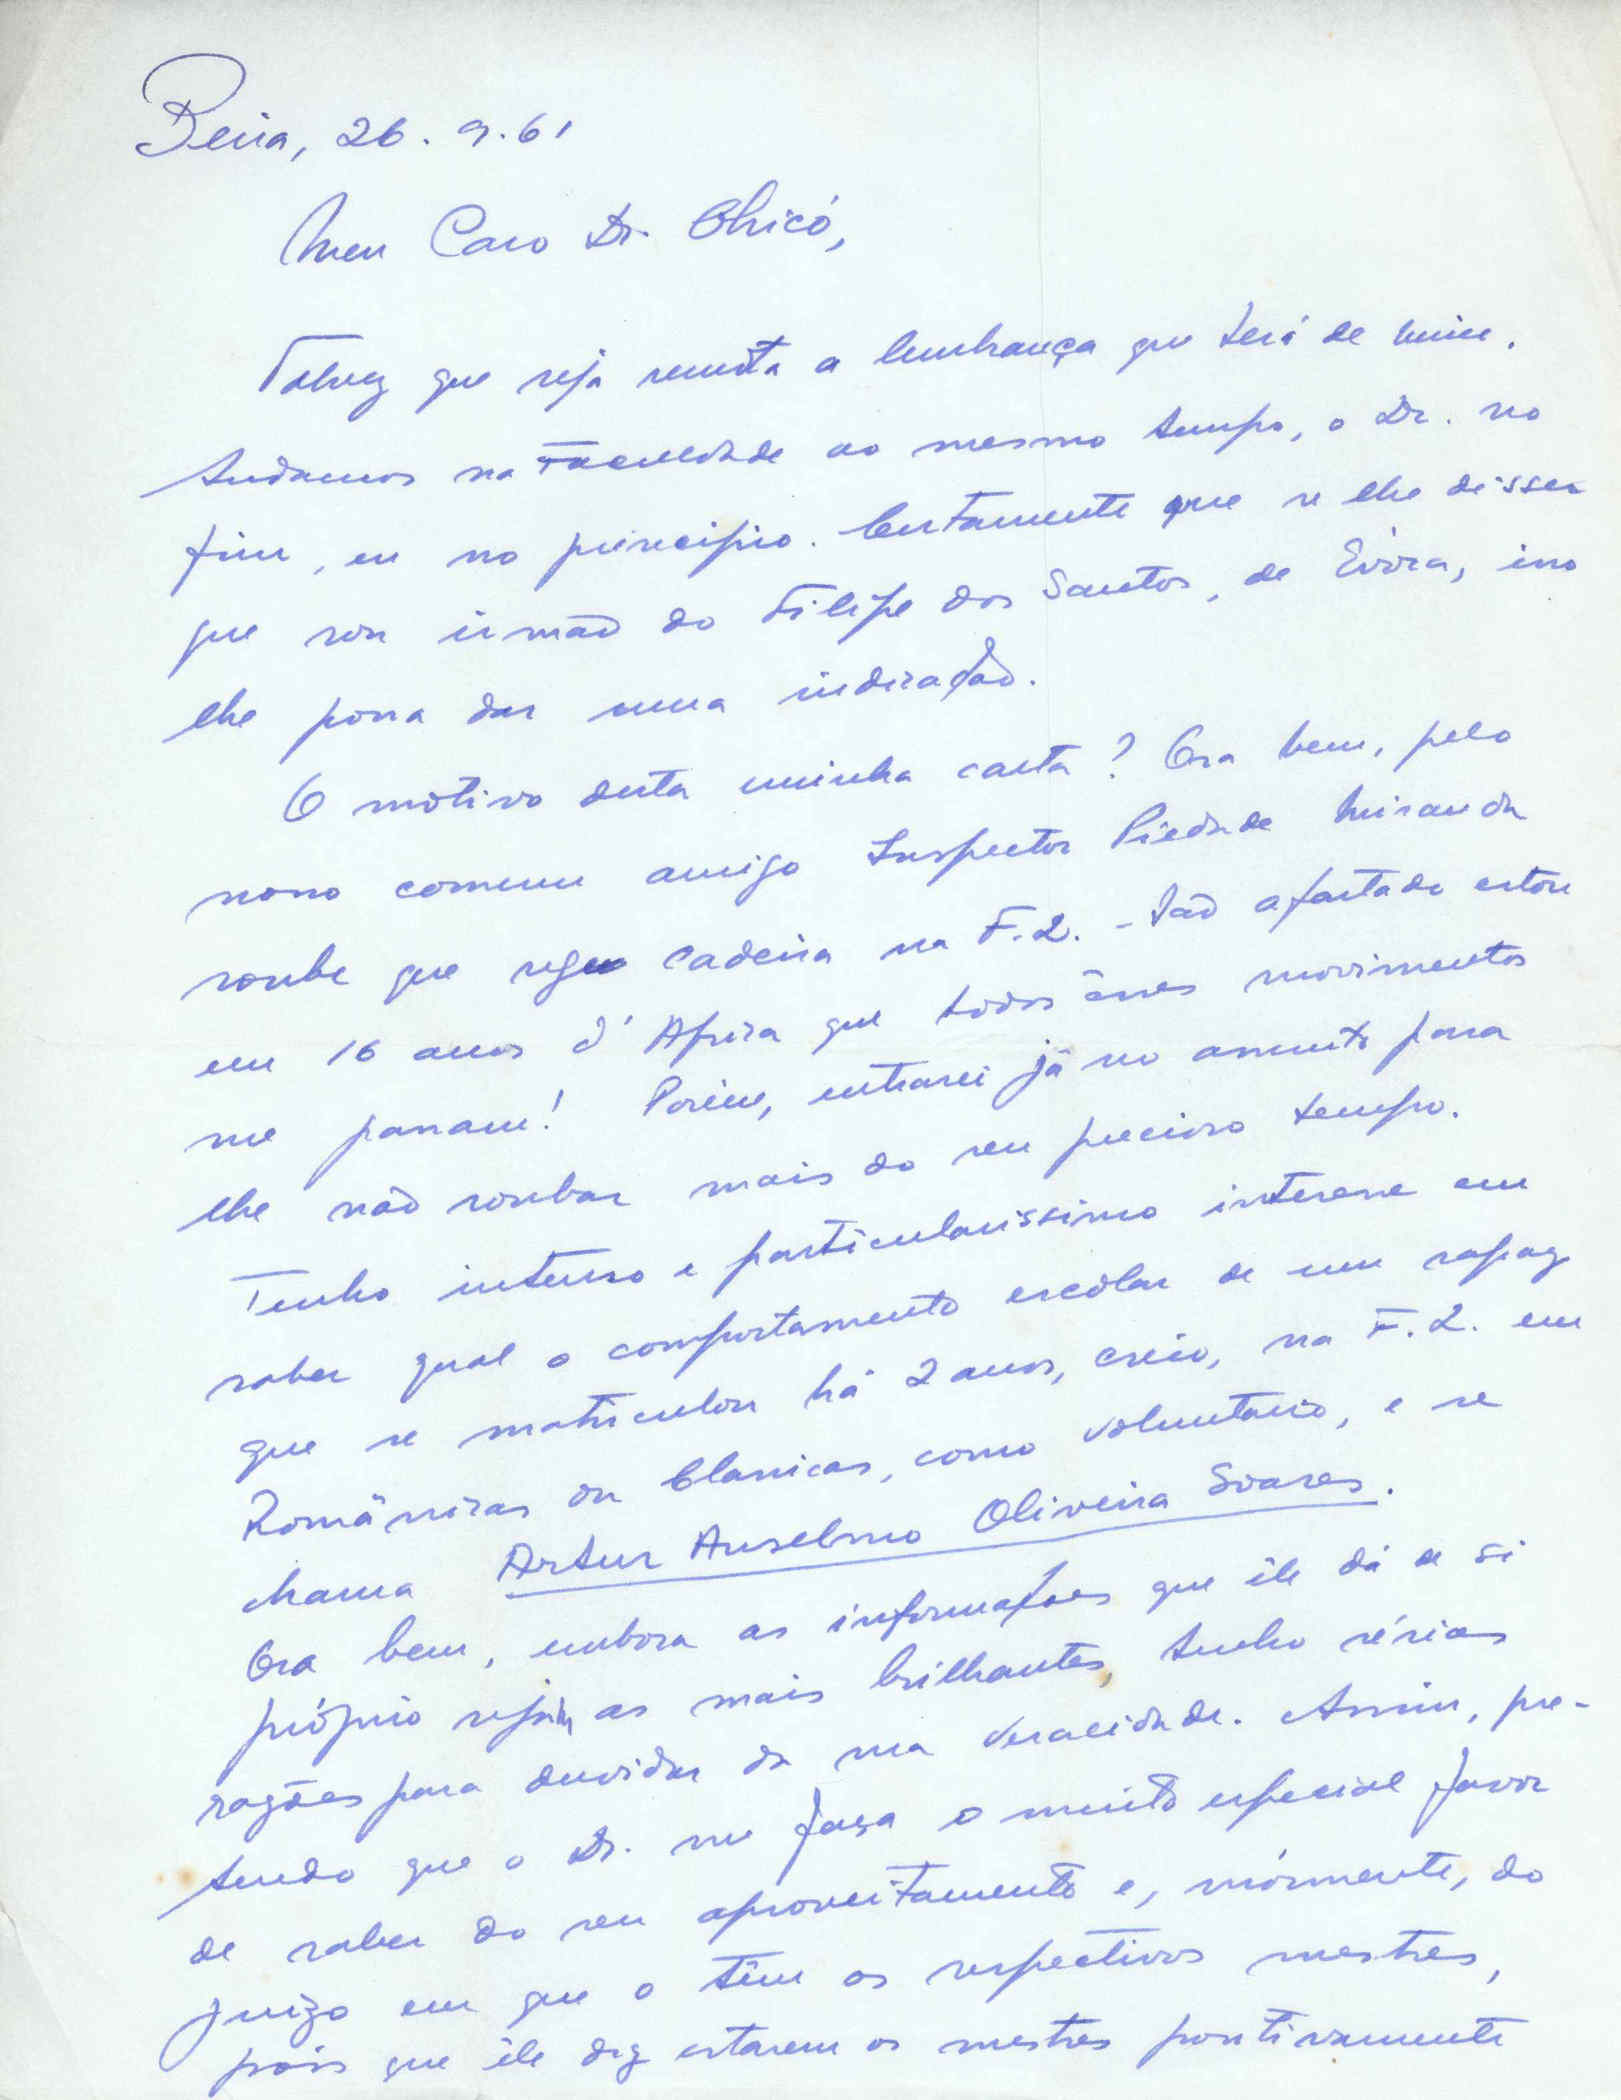 Beira, 26.9.61
Meu Caro Dr. Chicó,
Talvez que seja remota a lembrança que terá de mim.
Andamos na Faculdade ao mesmo tempo, o Dr. no
fim, eu no princípio. Certamente que se lhe disser
que sou irmão do Filipe dos Santos, de Évora, isso
lhe possa dar uma indicação.
O motivo desta minha carta? Ora bem, pelo
nosso comum amigo Inspector Piedade Miranda
soube que rege cadeira na F.L. - Tão afastado estou
em 16 anos d'Africa que todos êsses movimentos
me passam! Porém, entrarei já no assunto para
lhe não roubar mais do seu precioso tempo.
Tenho intenso e particularissimo interesse em
saber qual o comportamento escolar de um rapaz
que se matriculou há 2 anos, creio, na F.L. em
Românicas ou Clássicas, como voluntario, e se
chama Artur Anselmo Oliveira Soares.
Ora bem, embora as informações que êle dá de si
próprio sejam as mais brilhantes, tenho sérias
razões para duvidar da sua veracidade. Assim, pre-
tendo que o Dr. me faça o muito especial favor
de saber do seu aproveitamento e, mórmente, do
juizo em que o têm os respectivos mestres,
pois que êle diz estarem os mestres positivamente